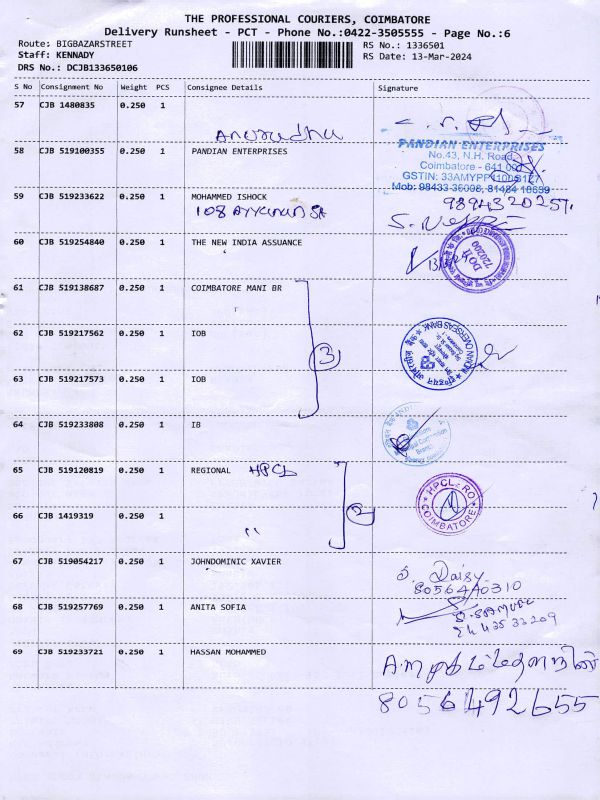 THE PROFESSIONAL COURIERS, COIMBATORE
Delivery Runsheet - PCT - Phone No.:0422-3505555 - Page No.:6
Route: BIGBAZARSTREET RS No.: 1336501
Staff: KENNADY RS Date: 13-Mar-2024
DRS No.: DCJB133650106
S No Consignment No Weight PCS Consignee Details Signature
57 CJB 1480835 0.250 1
Anuradha
58 CJB 519100355 0.250 1 PANDIAN ENTERPRISES
PANDIAN ENTERPRISES
No.43, N.H. Road,
Coimbatore - 641 001
Mob: 98433 36008, 81484 18699
59 CJB 519233622 0.250 1 MOHAMMED ISHOCK
108
60 CJB 519254840 0.250 1 THE NEW INDIA ASSUANCE
720200
61 CJB 519138687 0.250 1 COIMBATORE MANI BR
62 CJB 519217562 0.250 1 IOB
3
INDIAN OVERSEAS BANK
63 CJB 519217573 0.250 1 IOB
64 CJB 519233808 0.250 1 IB
65 CJB 519120819 0.250 1 REGIONAL HPCL
HPCL-RO
COIMBATORE
66 CJB 1419319 0.250 1 "
2
67 CJB 519054217 0.250 1 JOHNDOMINIC XAVIER
Daisy
8056440310
68 CJB 519257769 0.250 1 ANITA SOFIA
69 CJB 519233721 0.250 1 HASSAN MOHAMMED
8056492655